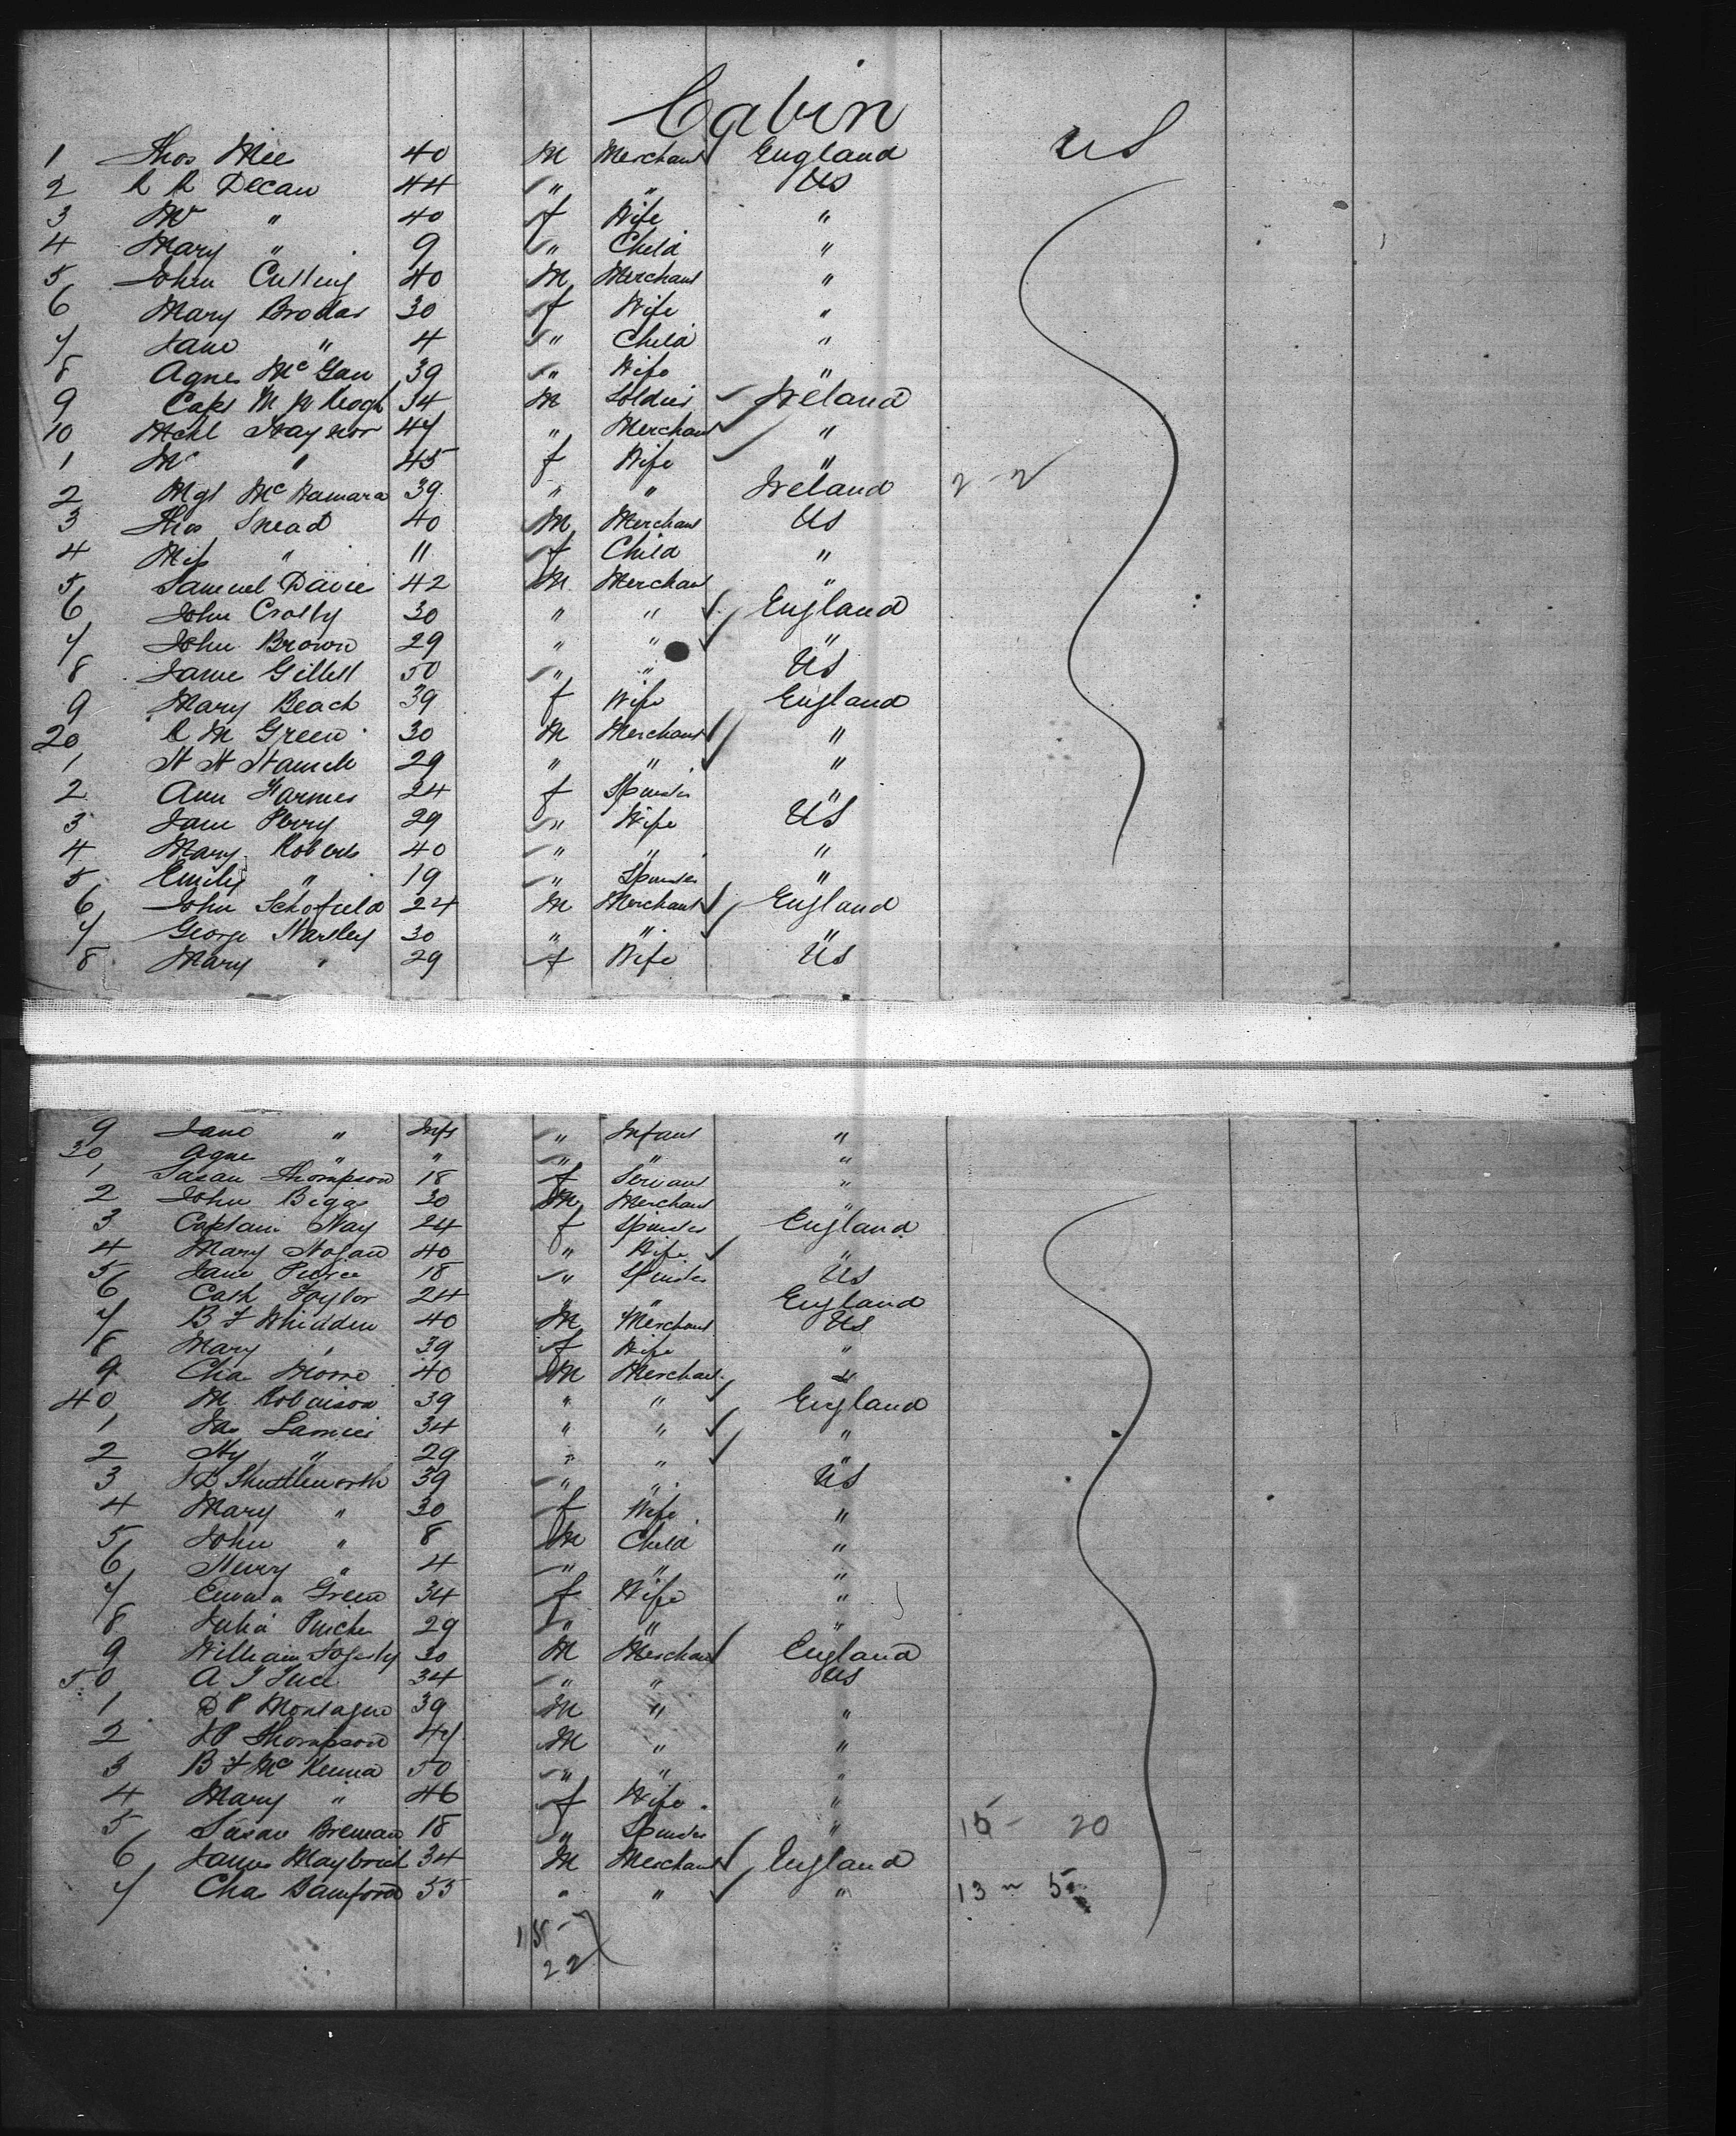 Cabin
1 Thos Mee 40 M Merchant England US
2 Decan 44 " " US
3 " 40 f Wife "
4 Mary " 9 " Child "
5 John 40 M Merchant "
6 Mary 30 f Wife "
7 Jane " 4 " Child "
8 Agnes McGan 39 " Wife "
9 Capt M W Keogh 34 M Soldier Ireland
10 Mchl 47 " Merchant "
1 " 45 f Wife "
2 Mgt McNamara 39 " " Ireland 2 - 2
3 Thos Snead 40 M Merchant US
4 Miss " 11 f Child "
5 Samuel Davie 42 M Merchant "
6 John 30 " " England
7 John Brown 29 " " "
8 Jame Gillett 50 " " US
9 Mary Beach 39 f Wife England
20 M Green 30 M Merchant "
1 H H 29 " " "
2 Ann 24 f Spinster "
3 Jane Perry 29 " Wife US
4 Mary Roberts 40 " " "
5 Emily " 19 " Spinster "
6 John Schofield 24 M Merchant England
7 George 30 " " "
8 Mary " 29 f Wife US
9 Jane " Inft " Infant "
30 Agne " " " " "
1 Susan Thompson 18 f Servant "
2 John Biggs 30 M Merchant "
3 Captain Hay 24 f Spinster England
4 Mary Hogan 40 " Wife "
5 Jane 18 " Spinster US
6 Cath Taylor 24 " " England
7 B F Whidden 40 M Merchant US
8 Mary " 39 f Wife "
9 Cha 40 M Merchant "
40 M Robinson 39 " " England
1 Jas 34 " " "
2 Hy " 29 " " "
3 Shuttleworth 39 " " US
4 Mary " 30 f Wife "
5 John " 8 M Child "
6 Henry " 4 " " "
7 Emma Green 34 f Wife "
8 Julia 29 " " "
9 William 30 M Merchant England
50 A 34 " " US
1 D P Montague 39 M " "
2 J P Thompson 47 M " "
3 B F McKenna 50 " " "
4 Mary " 46 f Wife "
5 Susan Brennan 18 " Spinster " 15 - 20
6 James Maybrick 34 M Merchant England
7 Cha Bamford 55 " " " 13 - 5
22